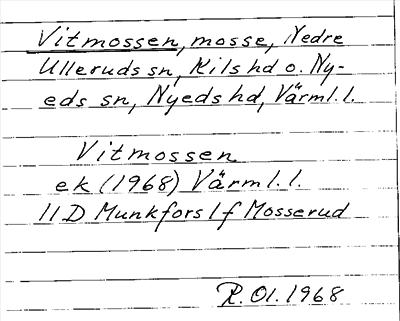 Vitmossen, mosse, Nedre
Ulleruds sn, Kils hd o. Ny-
eds sn, Nyeds hd, Värml. l.
Vitmossen
ek (1968) Värml. l.
11D Munkfors 1f Mosserud
R. Ol. 1968